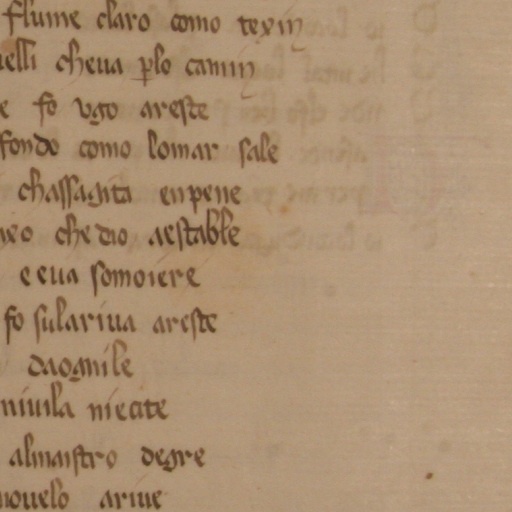 flume claro como texin
elli cheua ꝑlo camin
e fo vgo areste
fondo como lomar sale
chassagita enpene
eo che dio aestable
e eua somoiere
fo sulariua areste
daognile
niuila niecite
almaistro degre
nouelo ariue